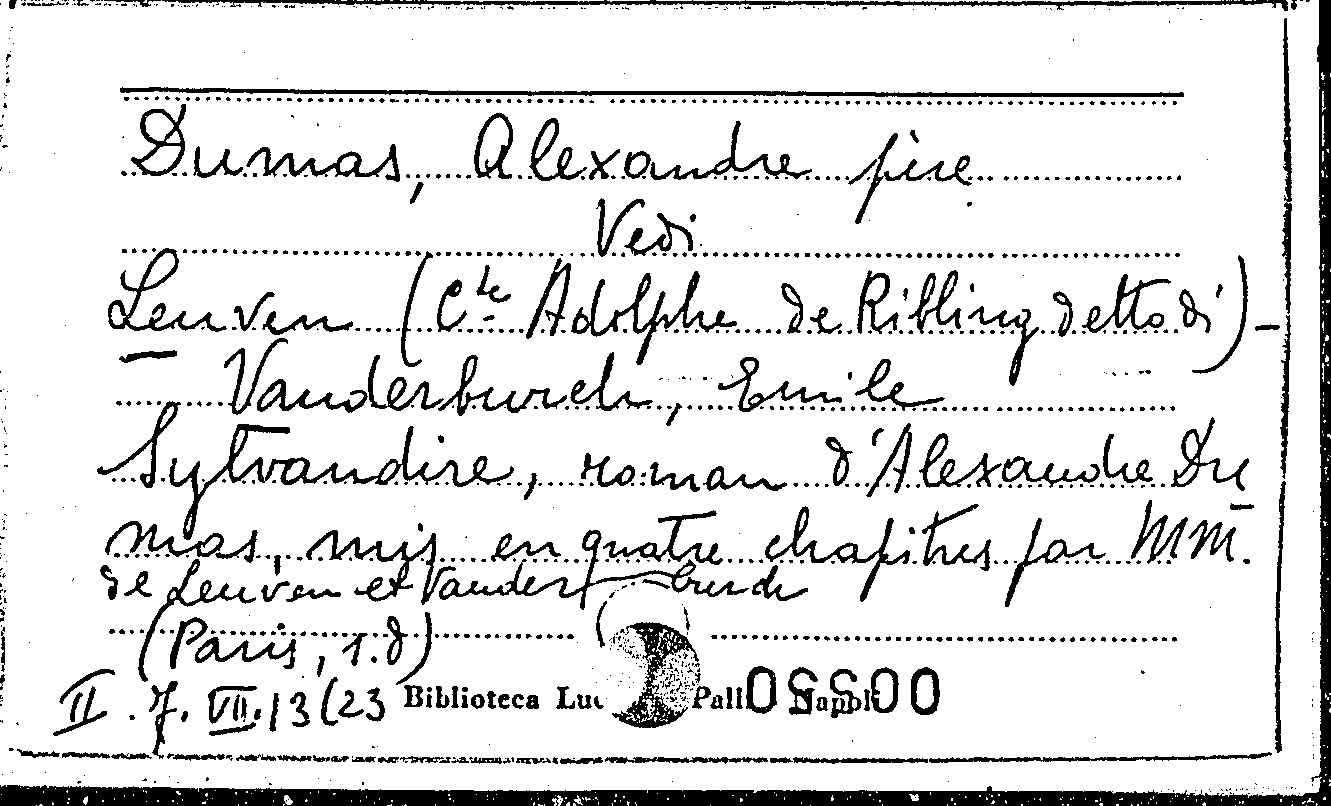 Dumas, Alexandre père
Vedi
Leuven (Cte Adolphe de Ribling detto di) -
Vanderburch, Emile
Sylvandire, roman d'Alexandre Du
mas, mis en quatre chapitres par MM.
de Leuven et Vanderburch
(Paris, s.d)
II. J. VII. 13 (23 Biblioteca